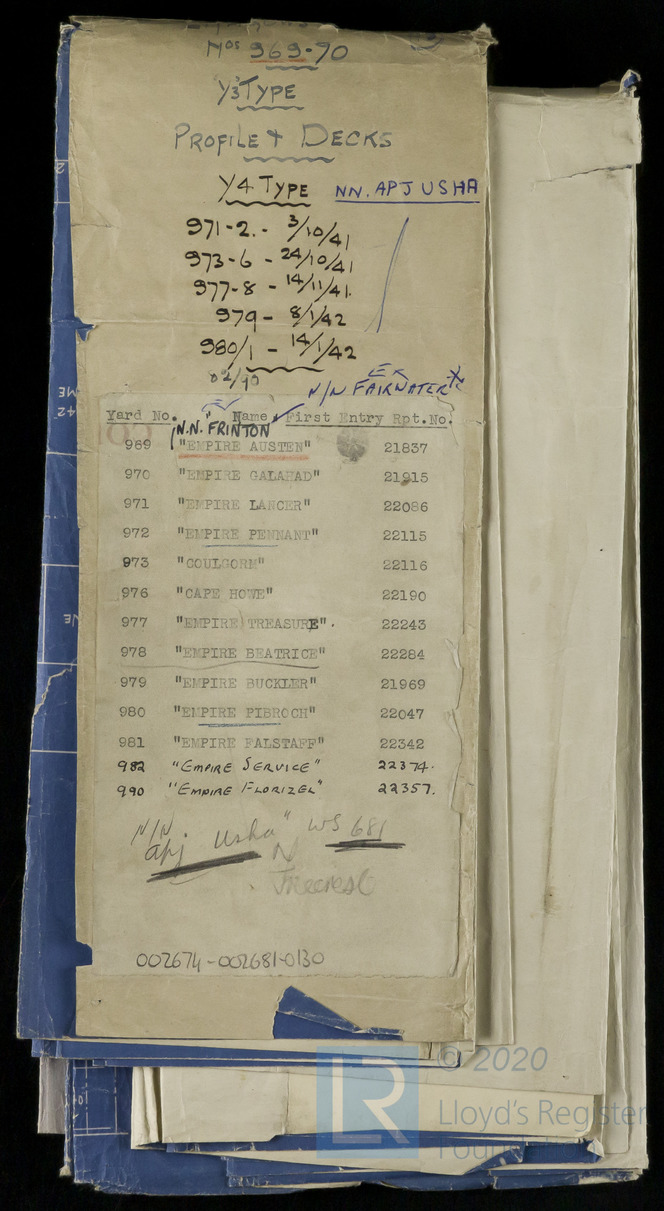 Nos 969-70
Y3 TYPE
PROFILE & DECKS
Y4 TYPE NN. APJ USHA
971-2. - 3/10/41
973-6 - 24/10/41
977-8 - 14/11/41.
979 - 8/1/42
980/1 - 14/1/42
82/90
EX
N/N FAIRWATER
Yard No. Name First Entry Rpt.No.
N.N. FRINTON
969 "EMPIRE AUSTEN" 21837
970 "EMPIRE GALAHAD" 21915
971 "EMPIRE LANCER" 22086
972 "EMPIRE PENNANT" 22115
973 "COULGORM" 22116
976 "CAPE HOWE" 22190
977 "EMPIRE TREASURE". 22243
978 "EMPIRE BEATRICE" 22284
979 "EMPIRE BUCKLER" 21969
980 "EMPIRE PIBROCH" 22047
981 "EMPIRE FALSTAFF" 22342
982 "EMPIRE SERVICE" 22374.
990 "EMPIRE FLORIZEL" 22357.
N/N
apj usha" WS 681
002674-002681-0130
© 2020
LR Lloyd's Register
Foundation